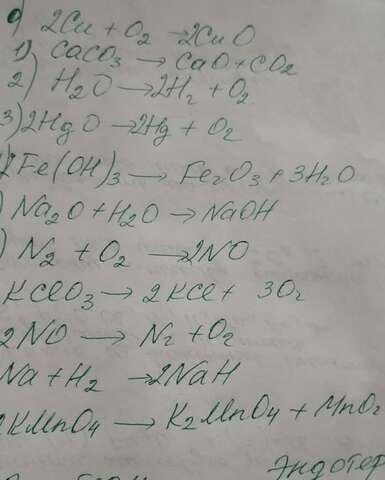 0) 2Cu + O2 → 2CuO
1) CaCO3 → CaO + CO2
2) H2O → 2H2 + O2
3) 2HgO → 2Hg + O2
2Fe(OH)3 → Fe2O3 + 3H2O
) Na2O + H2O → NaOH
) N2 + O2 → 2NO
KClO3 → 2KCl + 3O2
2NO → N2 + O2
Na + H2 → 2NaH
2KMnO4 → K2MnO4 + MnO2
Эндотер